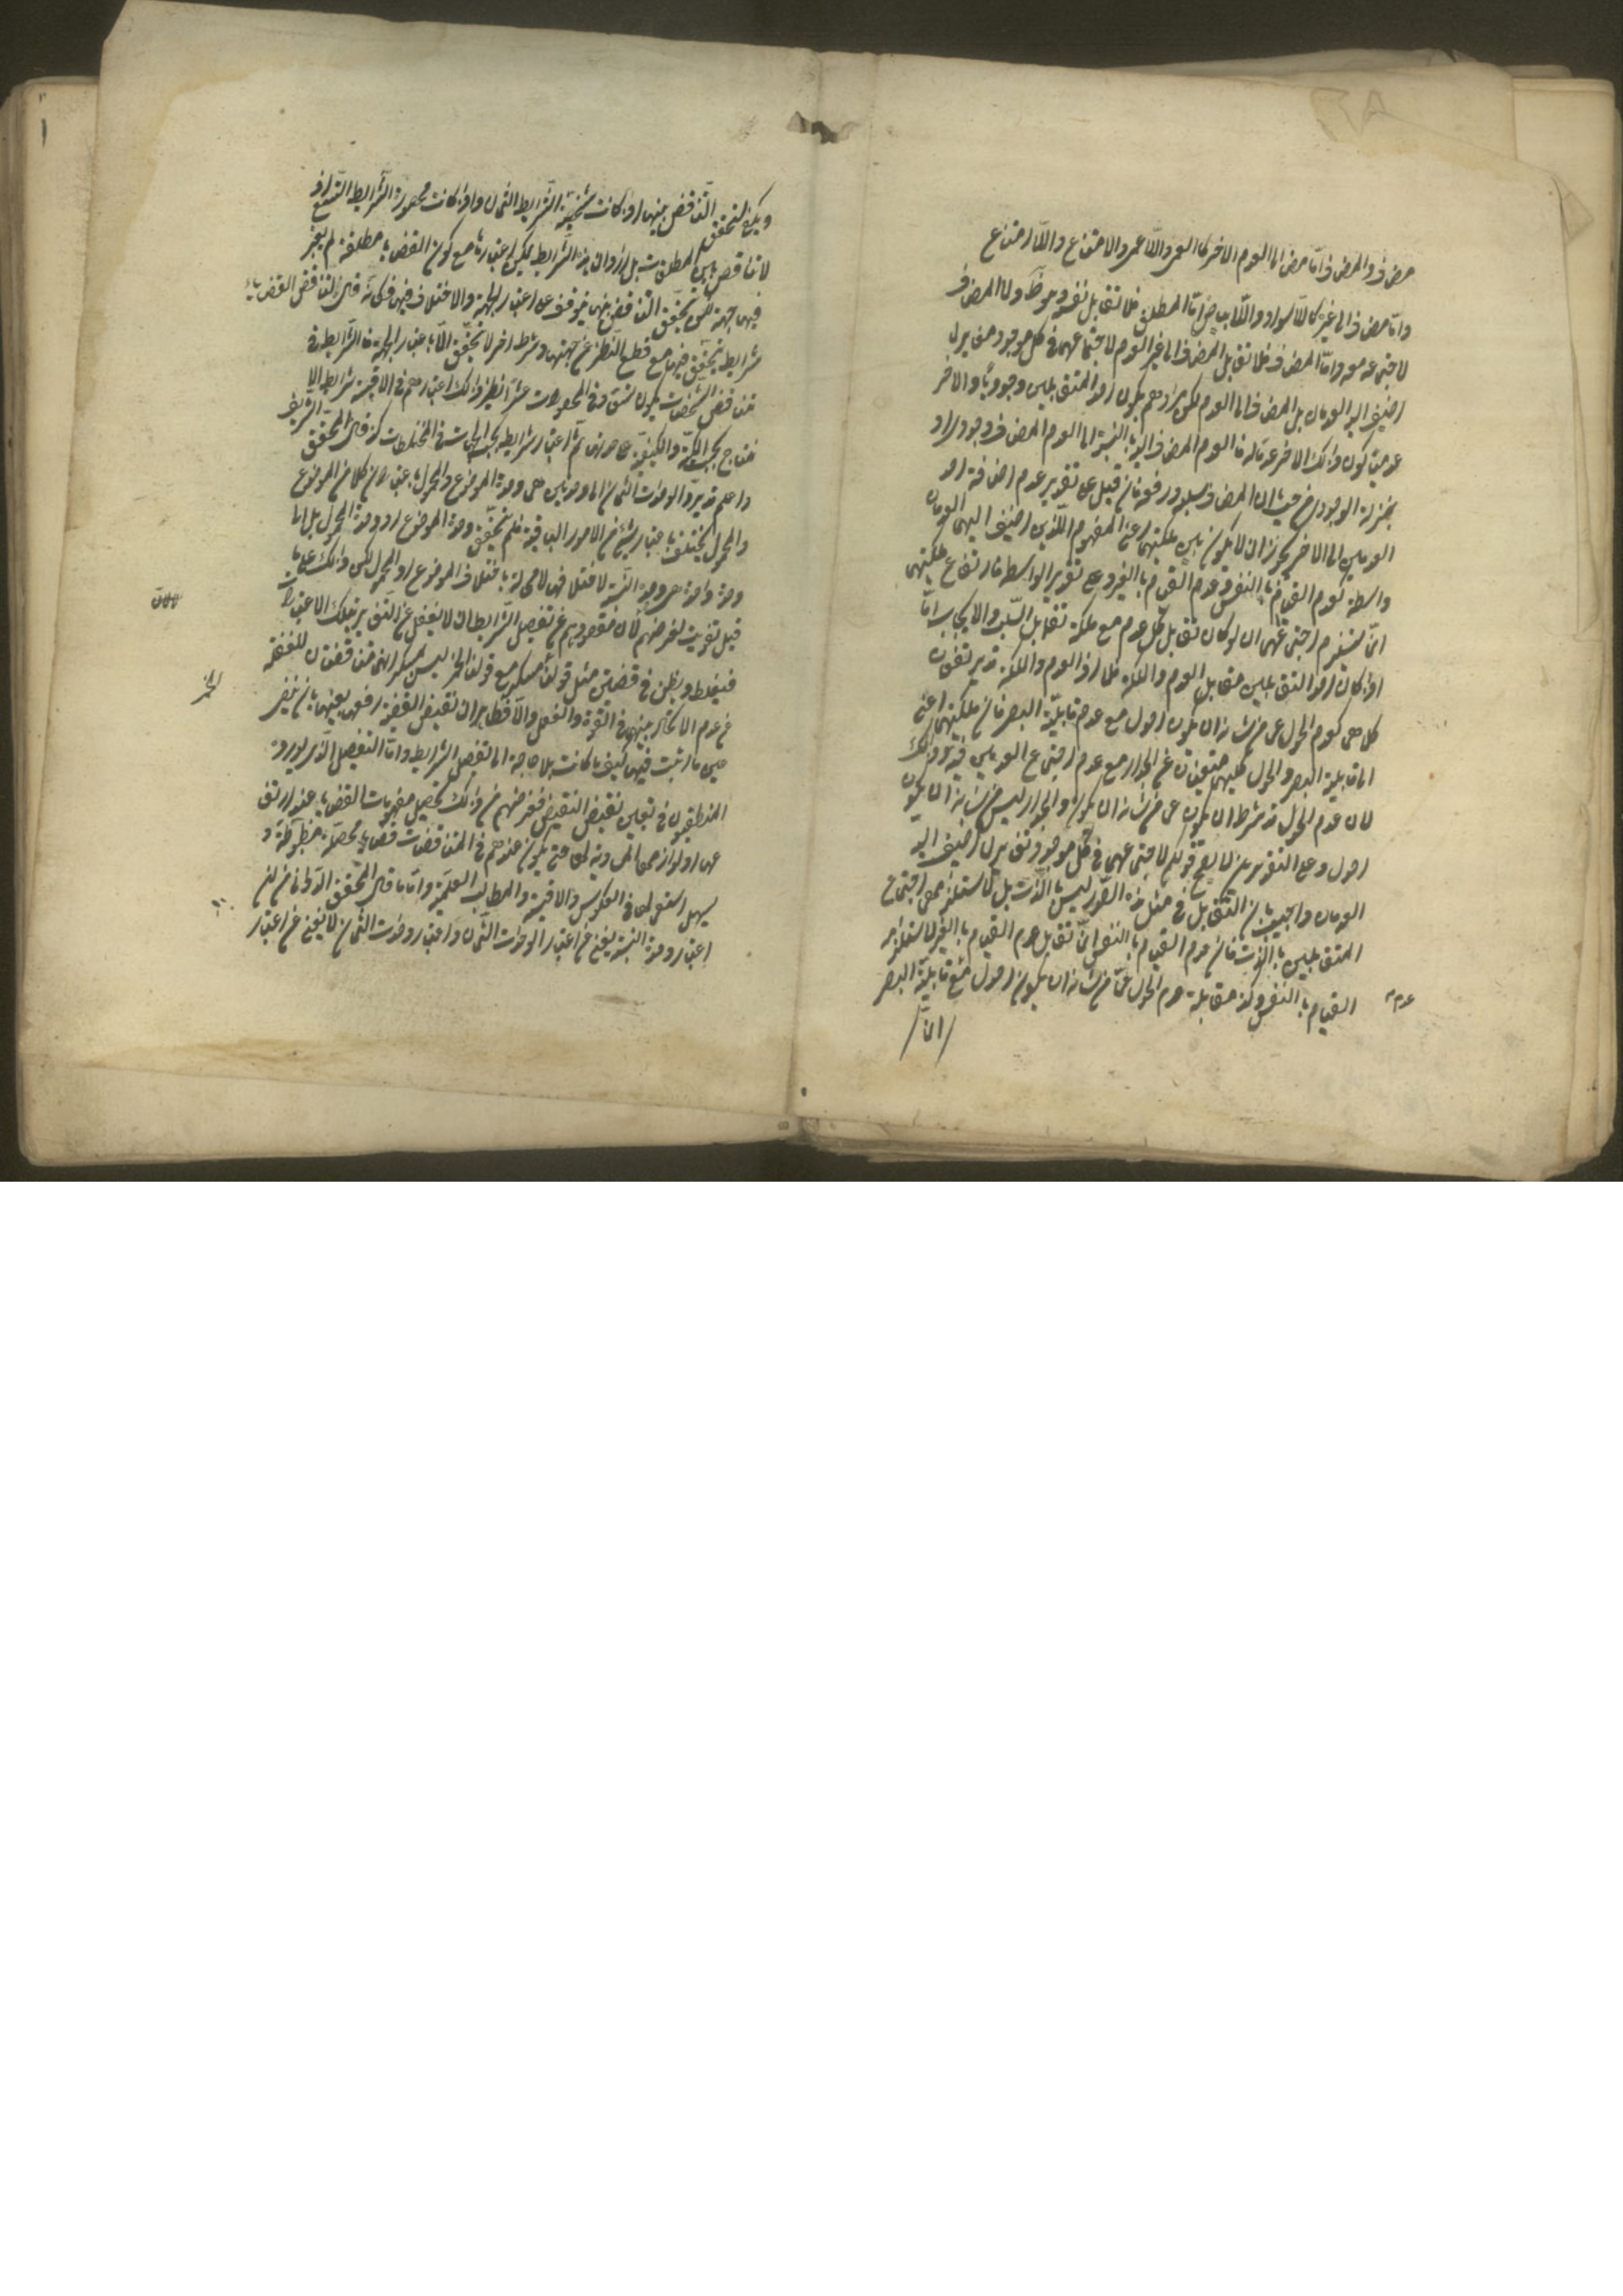 مضاف والمضاف اما مضاف الى العدم الاخر كالعمى واللاعمى والامتناع واللاامتناع
واما مضاف الى غيره كاللاسواد واللابياض اما المطلق فلا تقابل نفسه وهو ظ ولا المضاف
لاجتماعه معه واما المضاف فلا تقابل المضاف الى غير العدم لاجتماعهما في كل موجود مغاير لما
اضيف اليه العدمان بل المضاف الى العدم لكن مرادهم بكون احد المتقابلين وجوديا والاخر
عدميا كون ذلك الاخر عدما له فالعدم المضاف اليه بالنسبة الى العدم المضاف وجودي او
بمنزلة الوجودي من حيث ان المضاف سلبه ورفعه فان قيل على تقدير عدم اضافة احد
العدمين الى الاخر يجوز ان لا يكون بين ملكتيهما اعني المفهومين اللذين اضيف اليهما العدمان
واسطة كعدم القيام بالنفس وعدم القيام بالغير وعلى تقدير الواسطة فارتفاع ملكتيهما
انما يستلزم اجتماعهما ان لو كان تقابل كل عدم مع ملكته تقابل السلب والايجاب اما
اذا كان احد التقابلين تقابل العدم والملكة فلا اذ العدم والملكة قد يرتفعان
كلاهما كعدم الحول عن من شانه ان يكون احول مع عدم قابلية البصر فان ملكتيهما اعني
القابلية البصر والحول كليهما منتفيان عن الجدار مع عدم اجتماع العدمين فيه وذلك
لان عدم الحول قد شرط ان يكون عن من شانه ان يكون والجدار ليس من شانه ان يكون
احول وعلى التقديرين لا يصح قولكم لاجتماعهما في كل موجود مغاير لما اضيف اليه
العدمان واجيب بان التقابل في مثل هذه الصور ليس بالذات بل لاستلزامهما اجتماع
المتقابلين بالذات فان عدم القيام بالنفس انما تقابل عدم القيام بالغير لاستلزامه
القيام بالنفس وكذا مقابلة عدم الحول عما من شانه ان يكون احول مع قابلية البصر
عدم
انما
ويكفي لتحقق التناقض بينهما اذا كانت شخصية الشرايط الثمان واذا كانت محصورة الشرايط التسع اذ
لا تناقض بين المطلقات بل اذ وان هذه الشرايط يمكن اعتبارها مع كون القضايا مطلقة لم يعتبر
فيها جهة لكن تحقق التناقض بينها موقوف على اعتبار الجهة والاختلاف فيها فكانه قال التناقض القضايا
شرايط يتحقق فيها مع قطع النظر عن جهتها وشرط اخر لا يتحقق الا باعتبار الجهة فالشرايط في
تناقض الشخصيات يكون تسعة وفي المحصورات عشرا نظير ذلك اعتبارهم في الاقيسة شرايط الا
نتاج بحسب الكمية والكيفية على حدة ثم اعتبار شرايط بحسب الجهات في المختلطات كذا قال المحقق الشريف
واعلم قد يرد الوحدات الثمان الى وحدتين هي وحدة الموضوع والمحمول باعتبار ان كلا من الموضوع
والمحمول يختلف باختلاف شيء من الامور الباقية فلم يتحقق وحدة الموضوع او وحدة المحمول بل الى
وحدة واحدة هي وحدة النسبة لاختلافها لا محالة باختلاف الموضوع او المحمول لكن ذلك على ما
قيل تفويت لغرضهم لان مقصودهم من تفصيل الشرايط ان لا يغفل عن التغاير بتلك الاعتبارات
فيغلط ويظن في قضيتين مثل قولنا الخمر مسكر مع قولنا الخمر ليس بمسكر انهما متناقضتان للغفلة
من عدم الاتحاد بينهما في القوة والفعل والا فظاهر ان نقيض القضية رفعها بعينها بان ينفى
عين ما اثبت فيها كيف ما كانت بلا حاجة الى تفصيل الشرايط واما التفصيل الذي يورده
المنطقيون في تعيين نقيض النقيض فغرضهم من ذلك تحصيل مفهومات القضايا عند ارتفا
عها او لوازمها المساوية لها حتى يكون عندهم في المتناقضات قضايا محصلة مضبوطة و
يسهل استعمالها في العكوس والاقيسة والمطالب العلمية واما ما قال المحقق الدواني من ان
اعتبار وحدة النسبة يغني عن اعتبار الوحدات الثمان واعتبار وحدات الثمان لا يغني عن اعتبار
الخمر